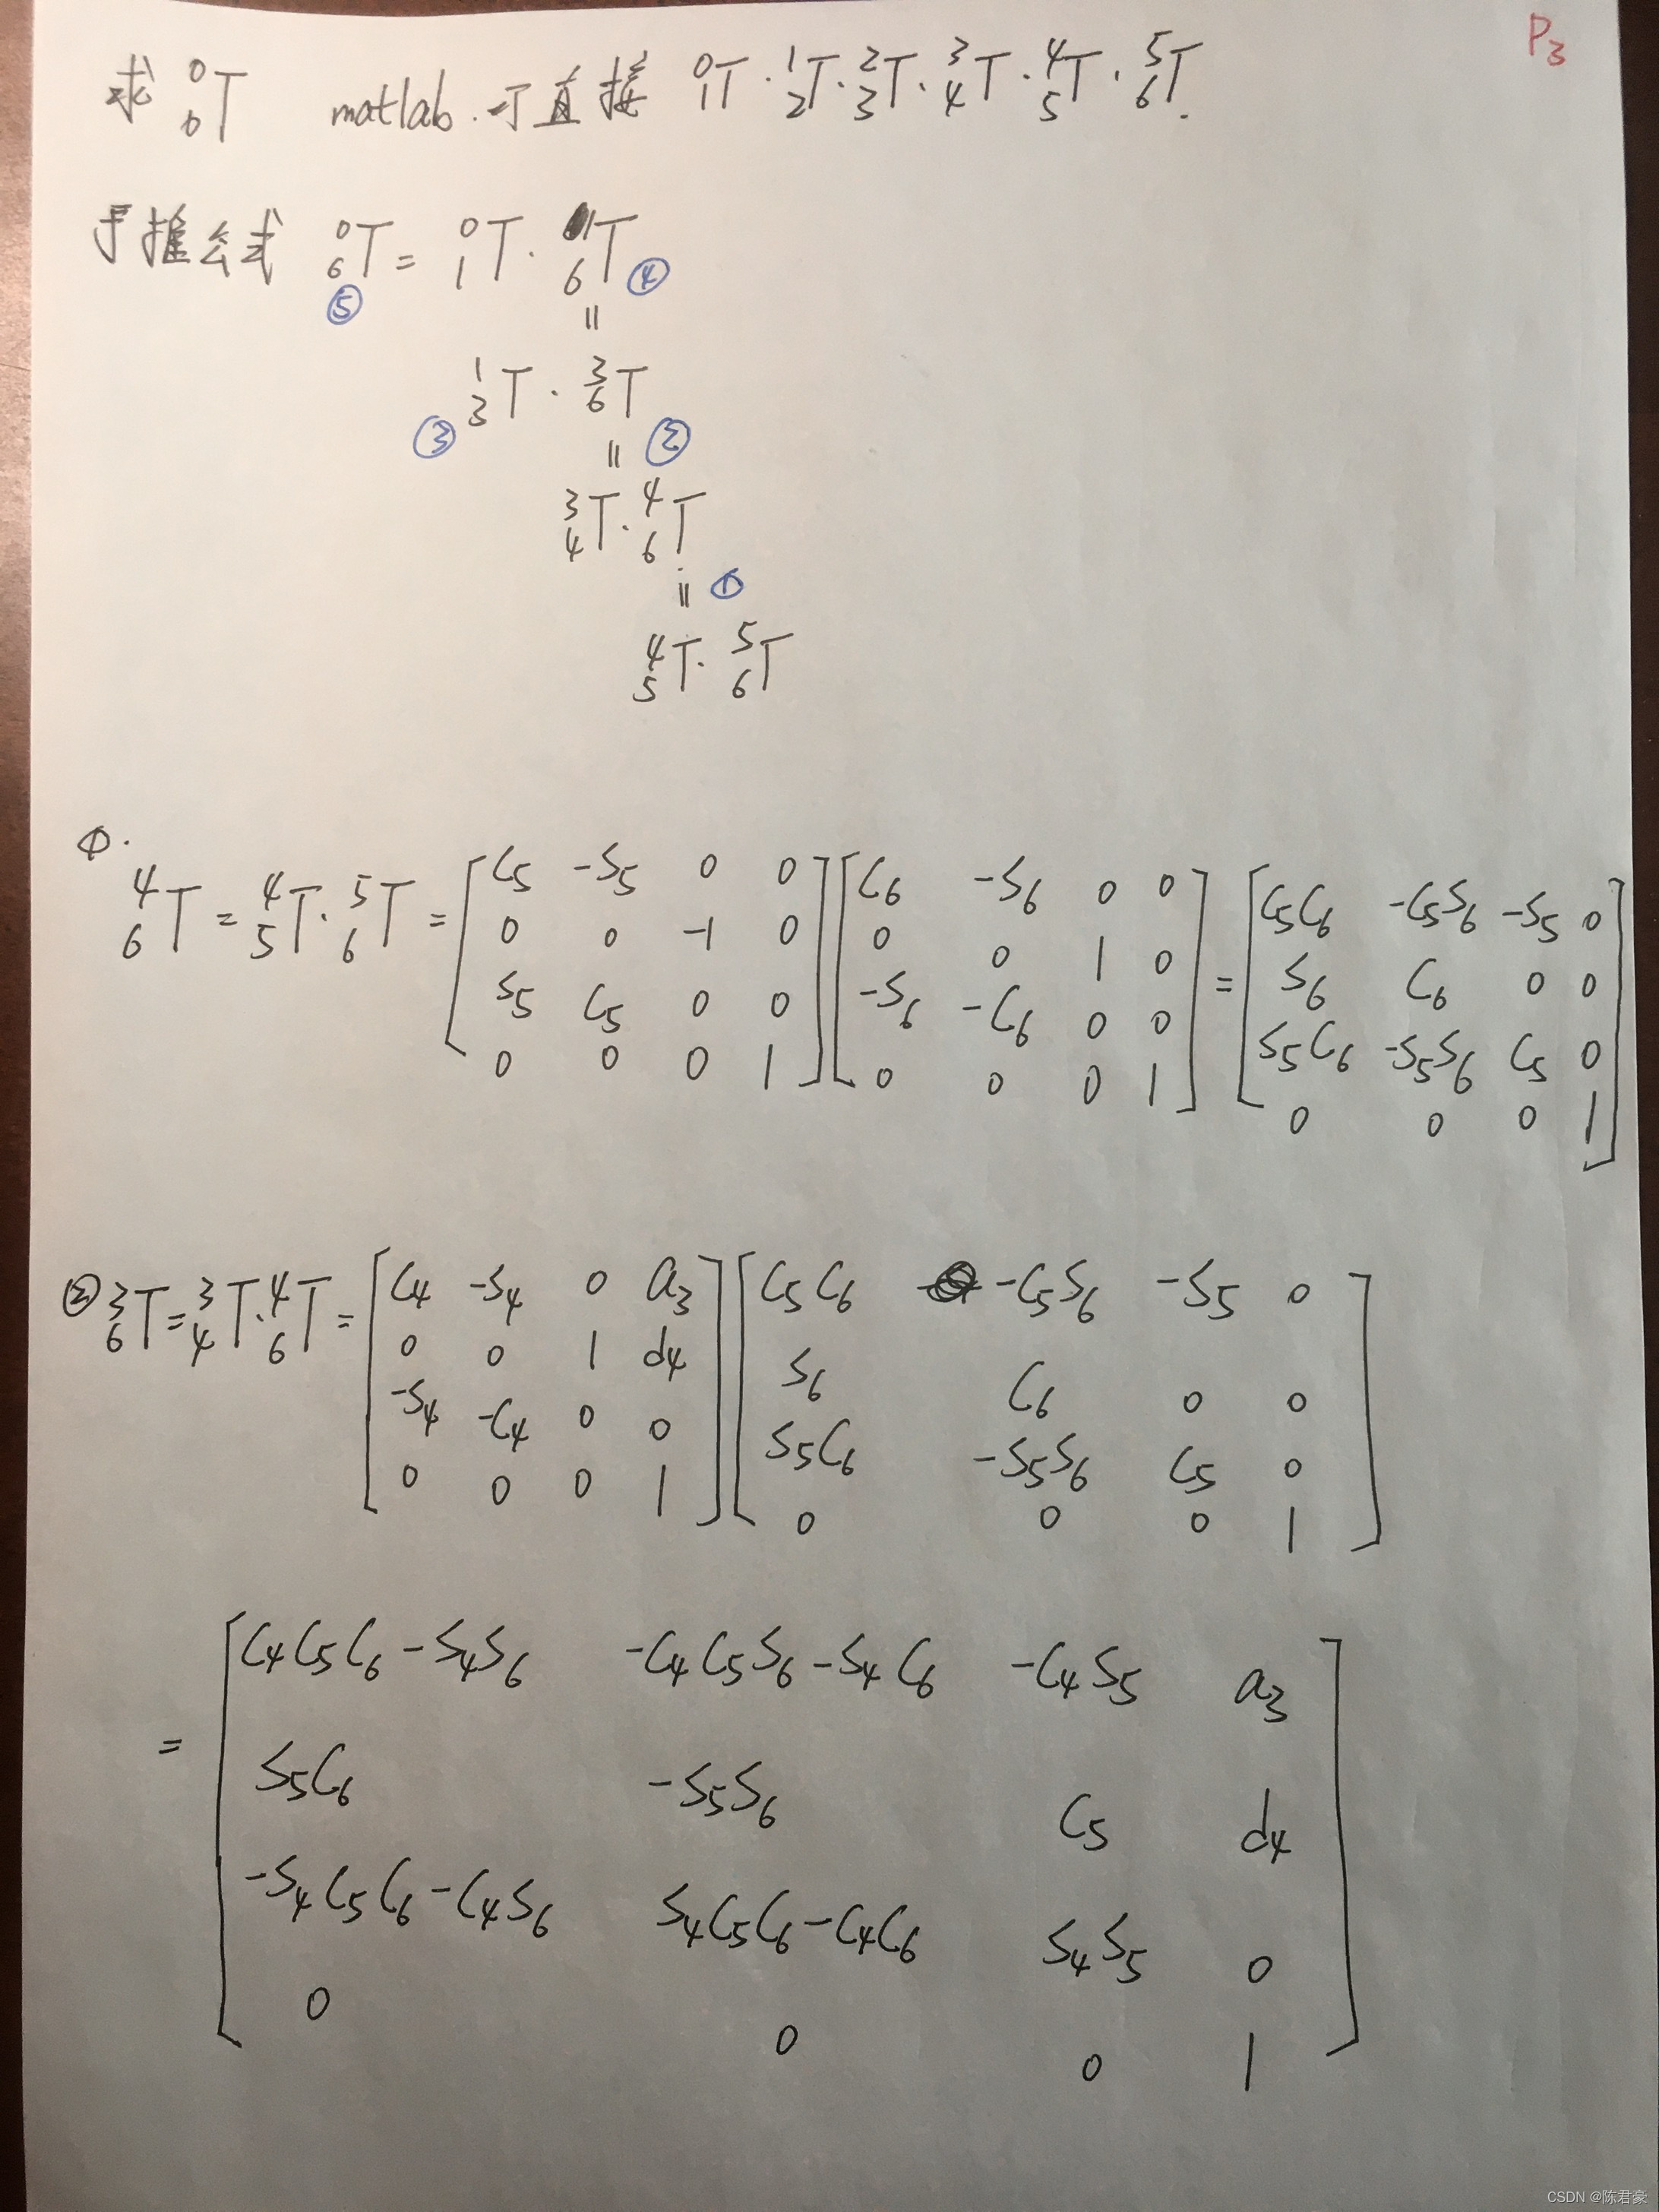 P3
求 ⁰₀T matlab.可直接 ⁰₁T·¹₂T·²₃T·³₄T·⁴₅T·⁵₆T.
手推公式 ⁰₆T = ⁰₁T · ¹₆T ④
⑤
||
¹₃T · ³₆T
③ || ②
³₄T·⁴₆T
|| ①
⁴₅T·⁵₆T
①.
⁴₆T = ⁴₅T·⁵₆T = [C5 -S5 0 0; 0 0 -1 0; S5 C5 0 0; 0 0 0 1][C6 -S6 0 0; 0 0 1 0; -S6 -C6 0 0; 0 0 0 1] = [C5C6 -C5S6 -S5 0; S6 C6 0 0; S5C6 -S5S6 C5 0; 0 0 0 1]
② ³₆T = ³₄T·⁴₆T = [C4 -S4 0 a3; 0 0 1 d4; -S4 -C4 0 0; 0 0 0 1][C5C6 -C5S6 -S5 0; S6 C6 0 0; S5C6 -S5S6 C5 0; 0 0 0 1]
= [C4C5C6-S4S6 -C4C5S6-S4C6 -C4S5 a3; S5C6 -S5S6 C5 d4; -S4C5C6-C4S6 S4C5C6-C4C6 S4S5 0; 0 0 0 1]
CSDN @陈君豪